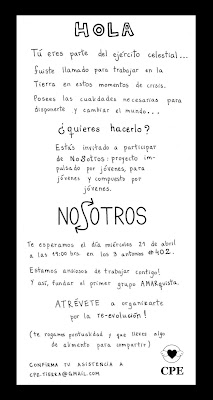 HOLA
Tú eres parte del ejército celestial...
Fuiste llamado para trabajar en la
Tierra en estos momentos de crisis.
Posees las cualidades necesarias para
disponerte y cambiar el mundo...
¿quieres hacerlo?
Estás invitado a participar
de NoSotros: proyecto im-
pulsado por jóvenes, para
jóvenes y compuesto por
jóvenes.
NOSOTROS
Te esperamos el día miércoles 21 de abril
a las 19:00 hrs. en los 3 antonios #402.
Estamos ansiosos de trabajar contigo!
Y así, fundar el primer grupo AMARquista.
ATRÉVETE a organizarte
por la re-evolución!
(te rogamos puntualidad y que lleves algo
de alimento para compartir)
CONFIRMA TU ASISTENCIA A
CPE.TIERRA@GMAIL.COM
CPE